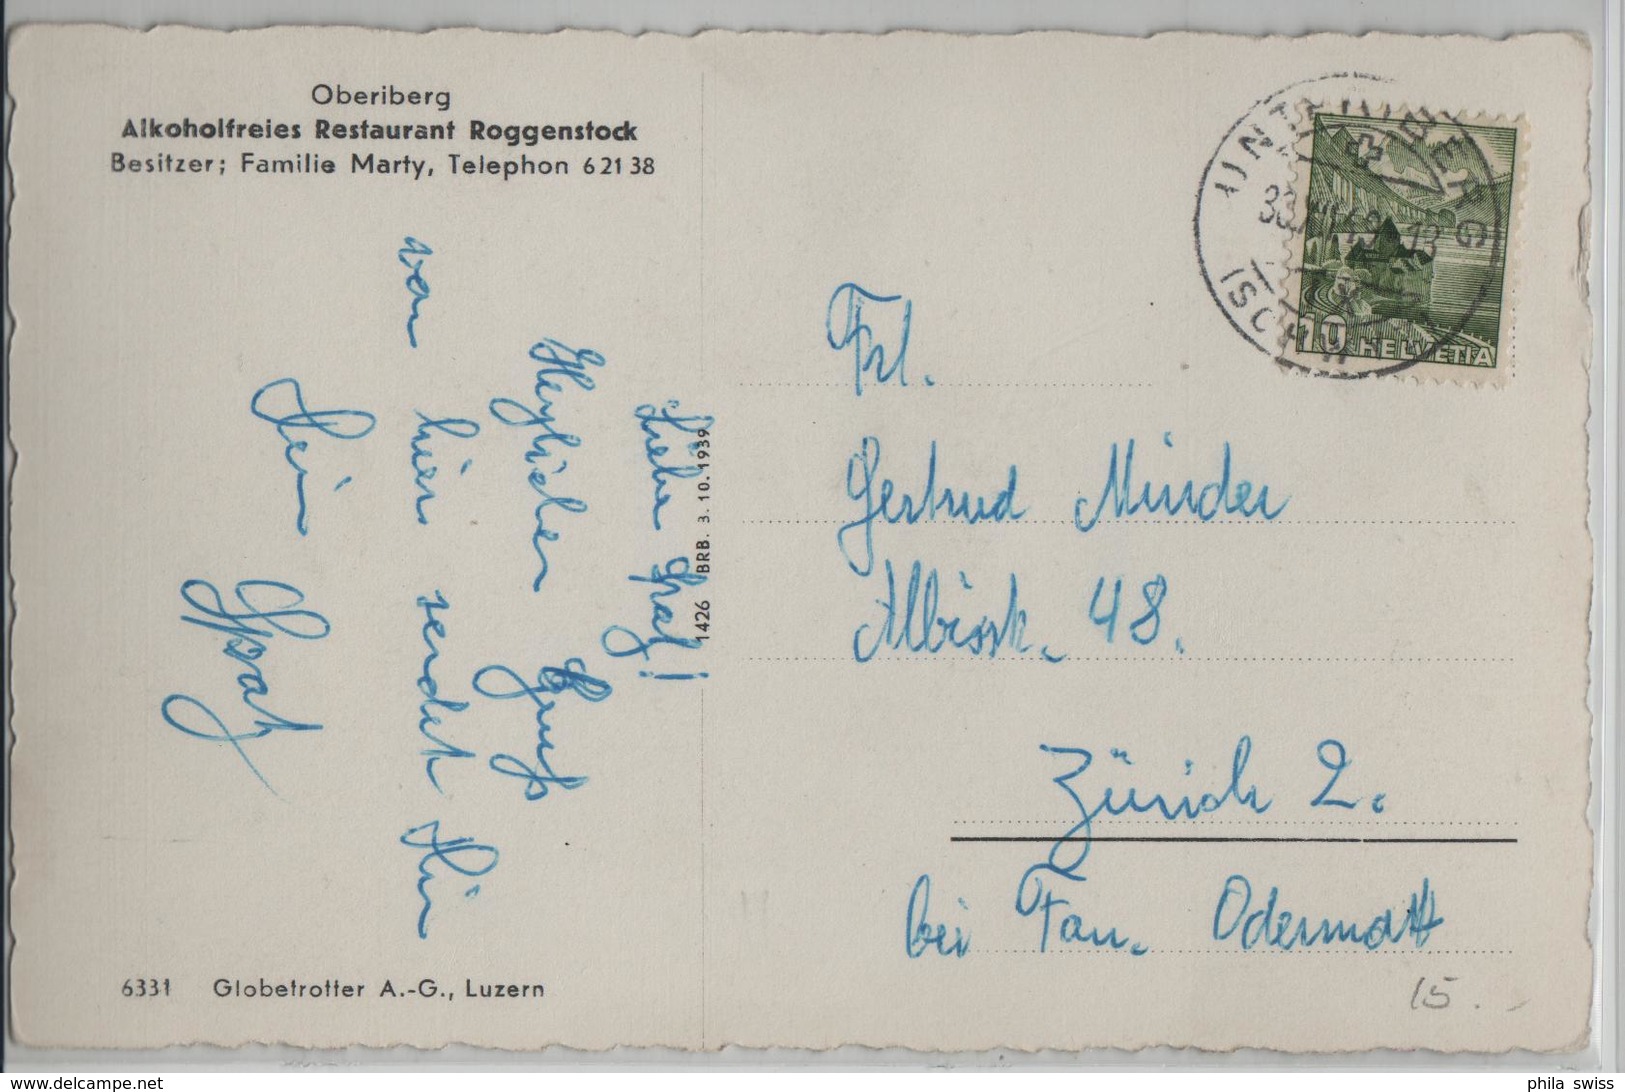 Oberiberg
Alkoholfreies Restaurant Roggenstock
Besitzer; Familie Marty, Telephon 6 21 38
Liebe
Herzlichen Gruss
von hier sendet Dir
Dein
Spatz
1426 BRB. 3. 10. 1939
UNTERIBERG
(SCHWYZ)
10 HELVETIA
Frl.
Gertrud Minder
Albisstr. 48.
Zürich 2.
bei Fam. Odermatt
6331 Globetrotter A.-G., Luzern
15.-
phila swiss